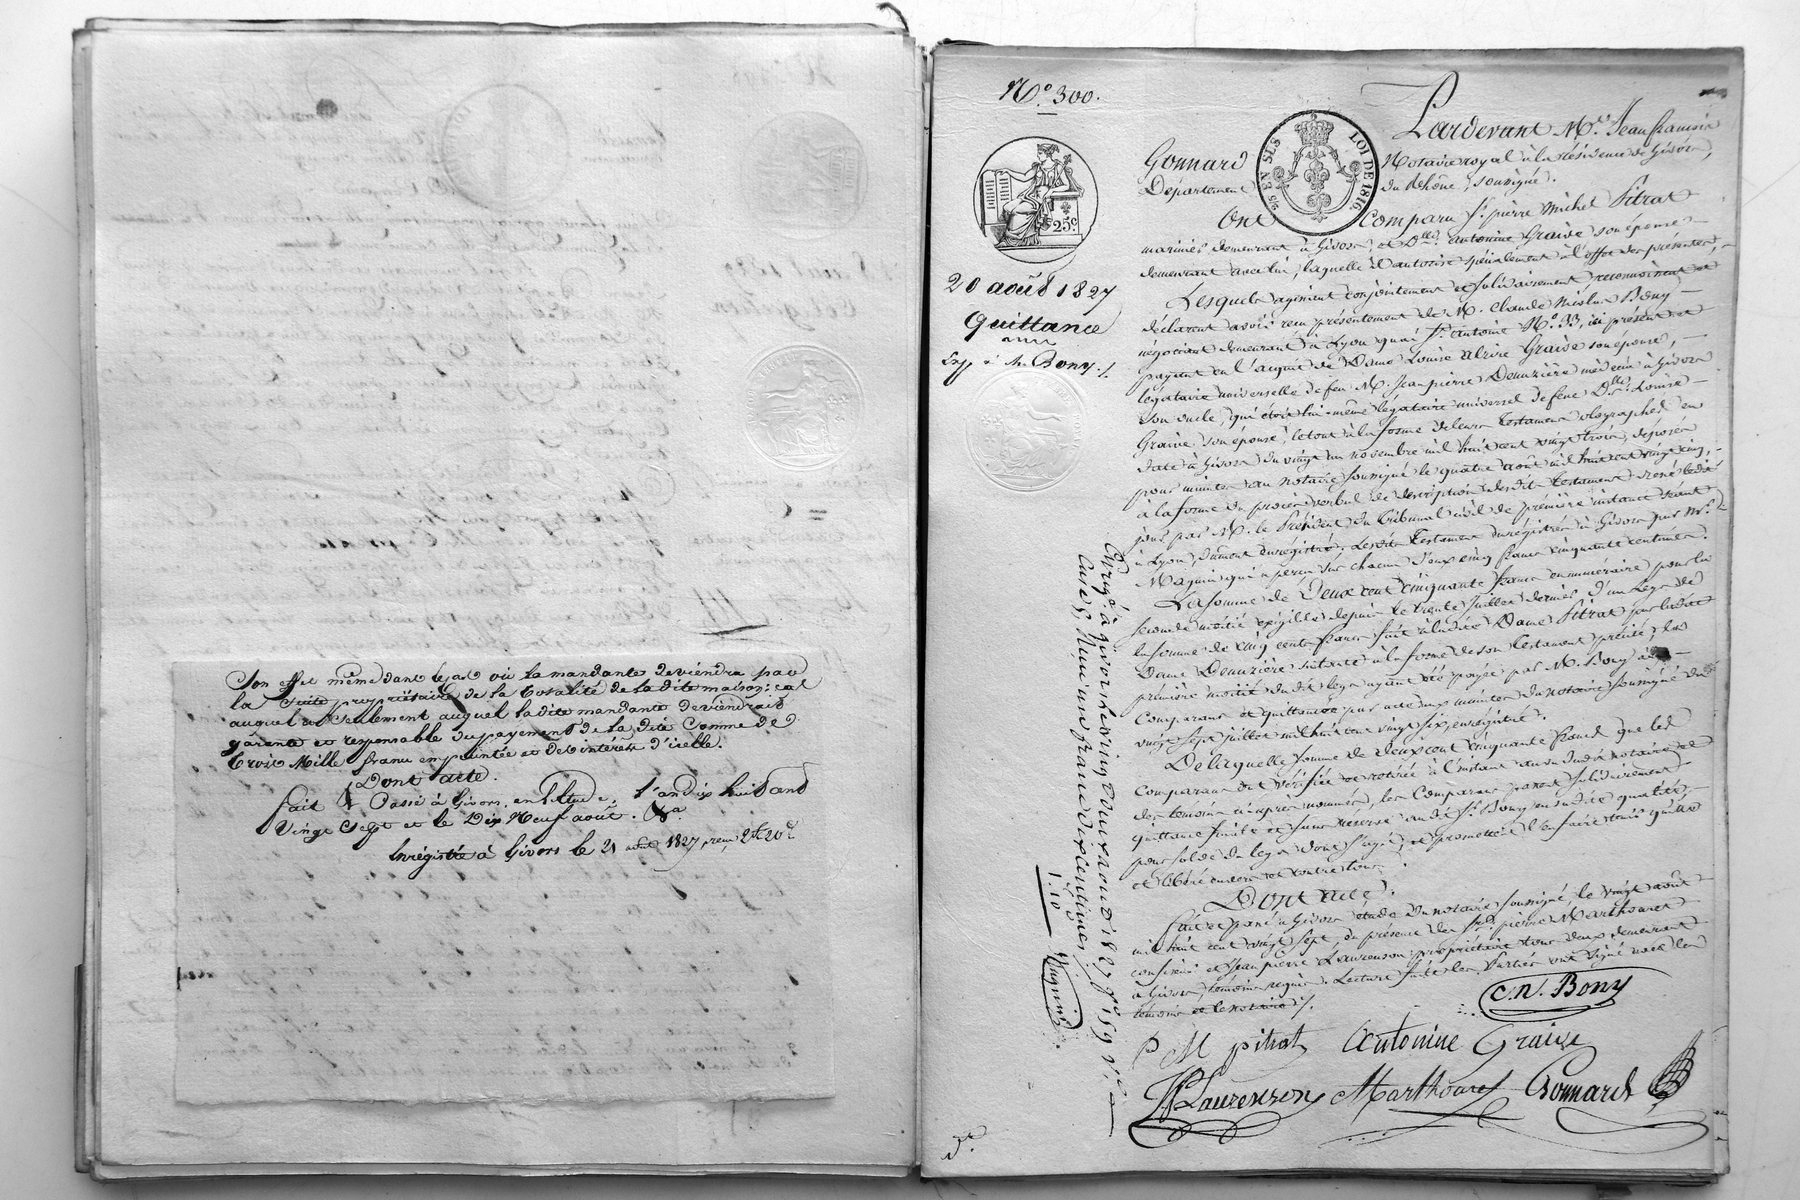 Son effet même dans le cas où la mandante deviendra par
la suite propriétaire de la totalité de la dite maison; cas
auquel seulement auquel la dite mandante deviendrait
garante et responsable du payement de la dite somme de
Trois Mille francs empruntée et des intérêts d'icelle.
Dont acte.
fait & Passé à Givors, en l'Etude, l'an dix huit cent
Vingt Sept et le Dix Neuf août.
Enregistré à Givors le 21 août 1827
N.o 300.
25c.
LOI DE 1816.
20 août 1827
Quittance
Exp à Mr Bony
Pardevant M.e Jean françois
Gonnard Notaire royal à la résidence de Givors,
Département du Rhône, soussigné.
Ont Comparu S.r pierre Michel Pitrat
marinier demeurant à Givors, et D.lle antonine Graise son épouse
demeurant avec lui, laquelle il autorise spécialement à l'effet des présentes,
Lesquels agissant conjointement et solidairement, reconnoissent et
déclarent avoir reçu présentement de M. Claude Nicolas Bony
négociant demeurant à Lyon quai S.t antoine N.o 33, ici présent et
payant en l'acquit de Dame Louise alzire Graise son épouse,
légataire universelle de feu M. Jean pierre Deuuzière médecin à Givors
son oncle, qui étoit lui-même légataire universel de feue D.lle Louise
Graise son épouse, le tout à la forme de leurs testamens olographes en
date à Givors du vingt un novembre mil huit cent vingt trois, déposés
pour minutes au notaire soussigné le quatre août mil huit cent vingt cinq,
à la forme du procès verbal de description desdits testamens
jour par M. le Président du tribunal civil de première instance séant
à Lyon, dument enregistré. Lesdits testamens enregistrés à Givors par M.r
Maguin qui a perçu sur chacun d'eux cinq francs cinquante centimes.
La somme de Deux cent cinquante francs en numéraire pour la
seconde moitié exigible depuis le trente juillet dernier d'un legs de
la somme de cinq cents francs fait à ladite Dame Pitrat par ladite
Dame Deuuzière suivant à la forme de son testament précité; la
première moitié du dit legs ayant été payée par M. Bony à
Comparans et quittancée par acte aux minutes du notaire soussigné du
vingt sept juillet mil huit cent vingt six, enregistré.
De laquelle somme de deux cent cinquante francs que les
Comparans ont vérifiée et retirée à l'instant au vu dudit notaire et
des témoins ci-après nommés, les Comparans passent solidairement
quittance finale et sans réserve audit S.r Bony en sadite qualité,
pour solde du legs dont s'agit, et promettent l'en faire tenir quitte
et libéré envers et contre tous.
Dont acte.
fait et passé à Givors étude du notaire soussigné, le vingt août
mil huit cent vingt sept, en présence de S.rs pierre Marthouret
confiseur et Jean pierre Laurenson propriétaire tous deux demeurant
à Givors, témoins requis. Lecture faite les Parties ont signé avec les
témoins et le notaire
C. N. Bony
P M pitrat antonine Graise
JP Laurenson Marthouret Gonnard
Enreg.é à Givors le vingt deux aout 1827 f.o 159
Case 5, Reçu un franc dix centimes
1.10
Maguin